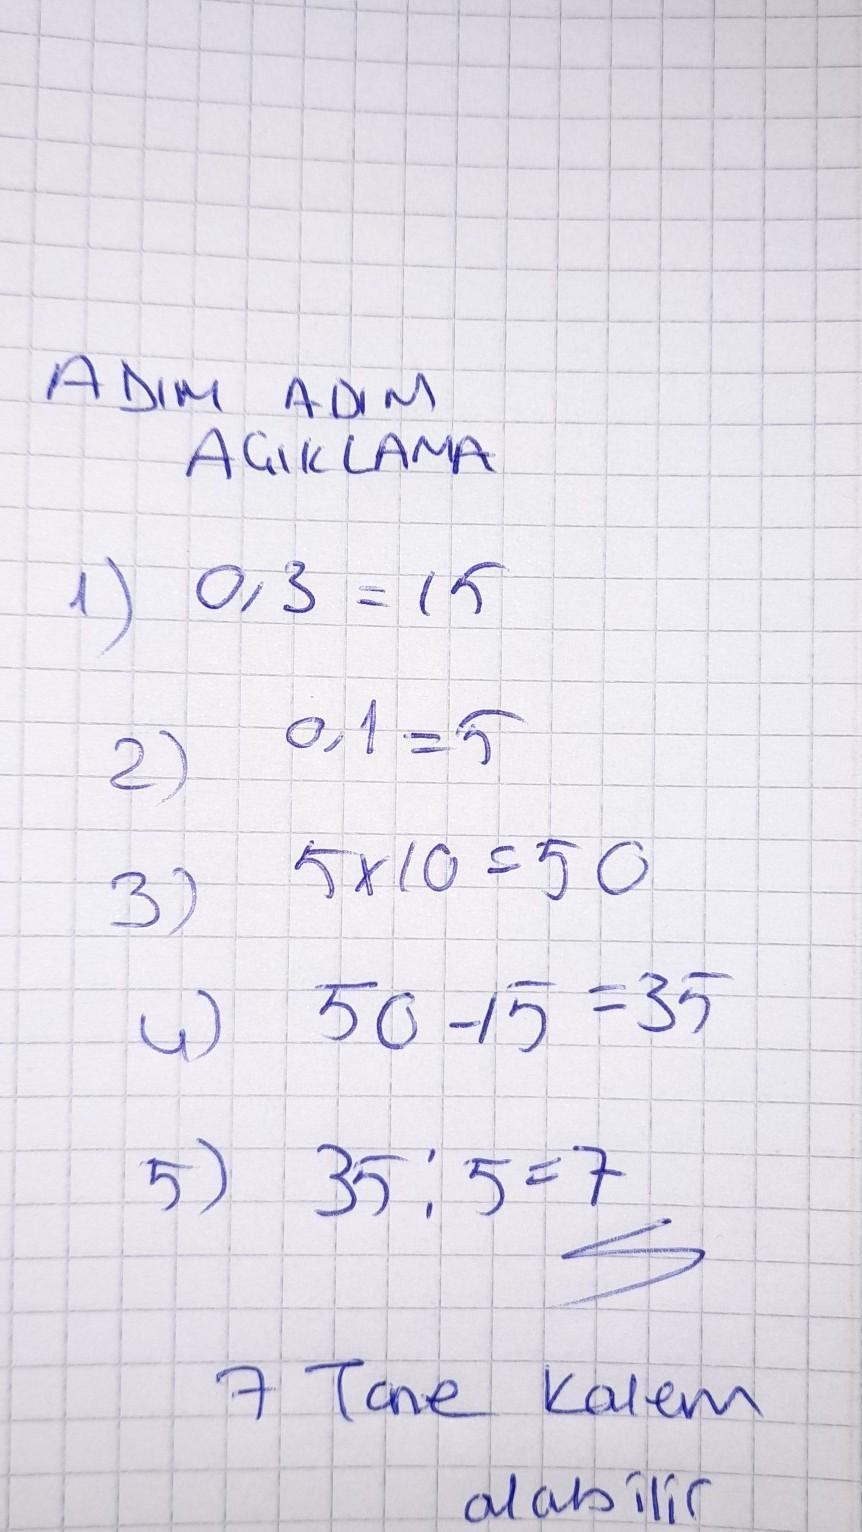 ADIM ADIM
AÇIKLAMA
1) 0,3 = 15
2) 0,1 = 5
3) 5x10 = 50
4) 50 - 15 = 35
5) 35 : 5 = 7
7 Tane kalem
alabilir